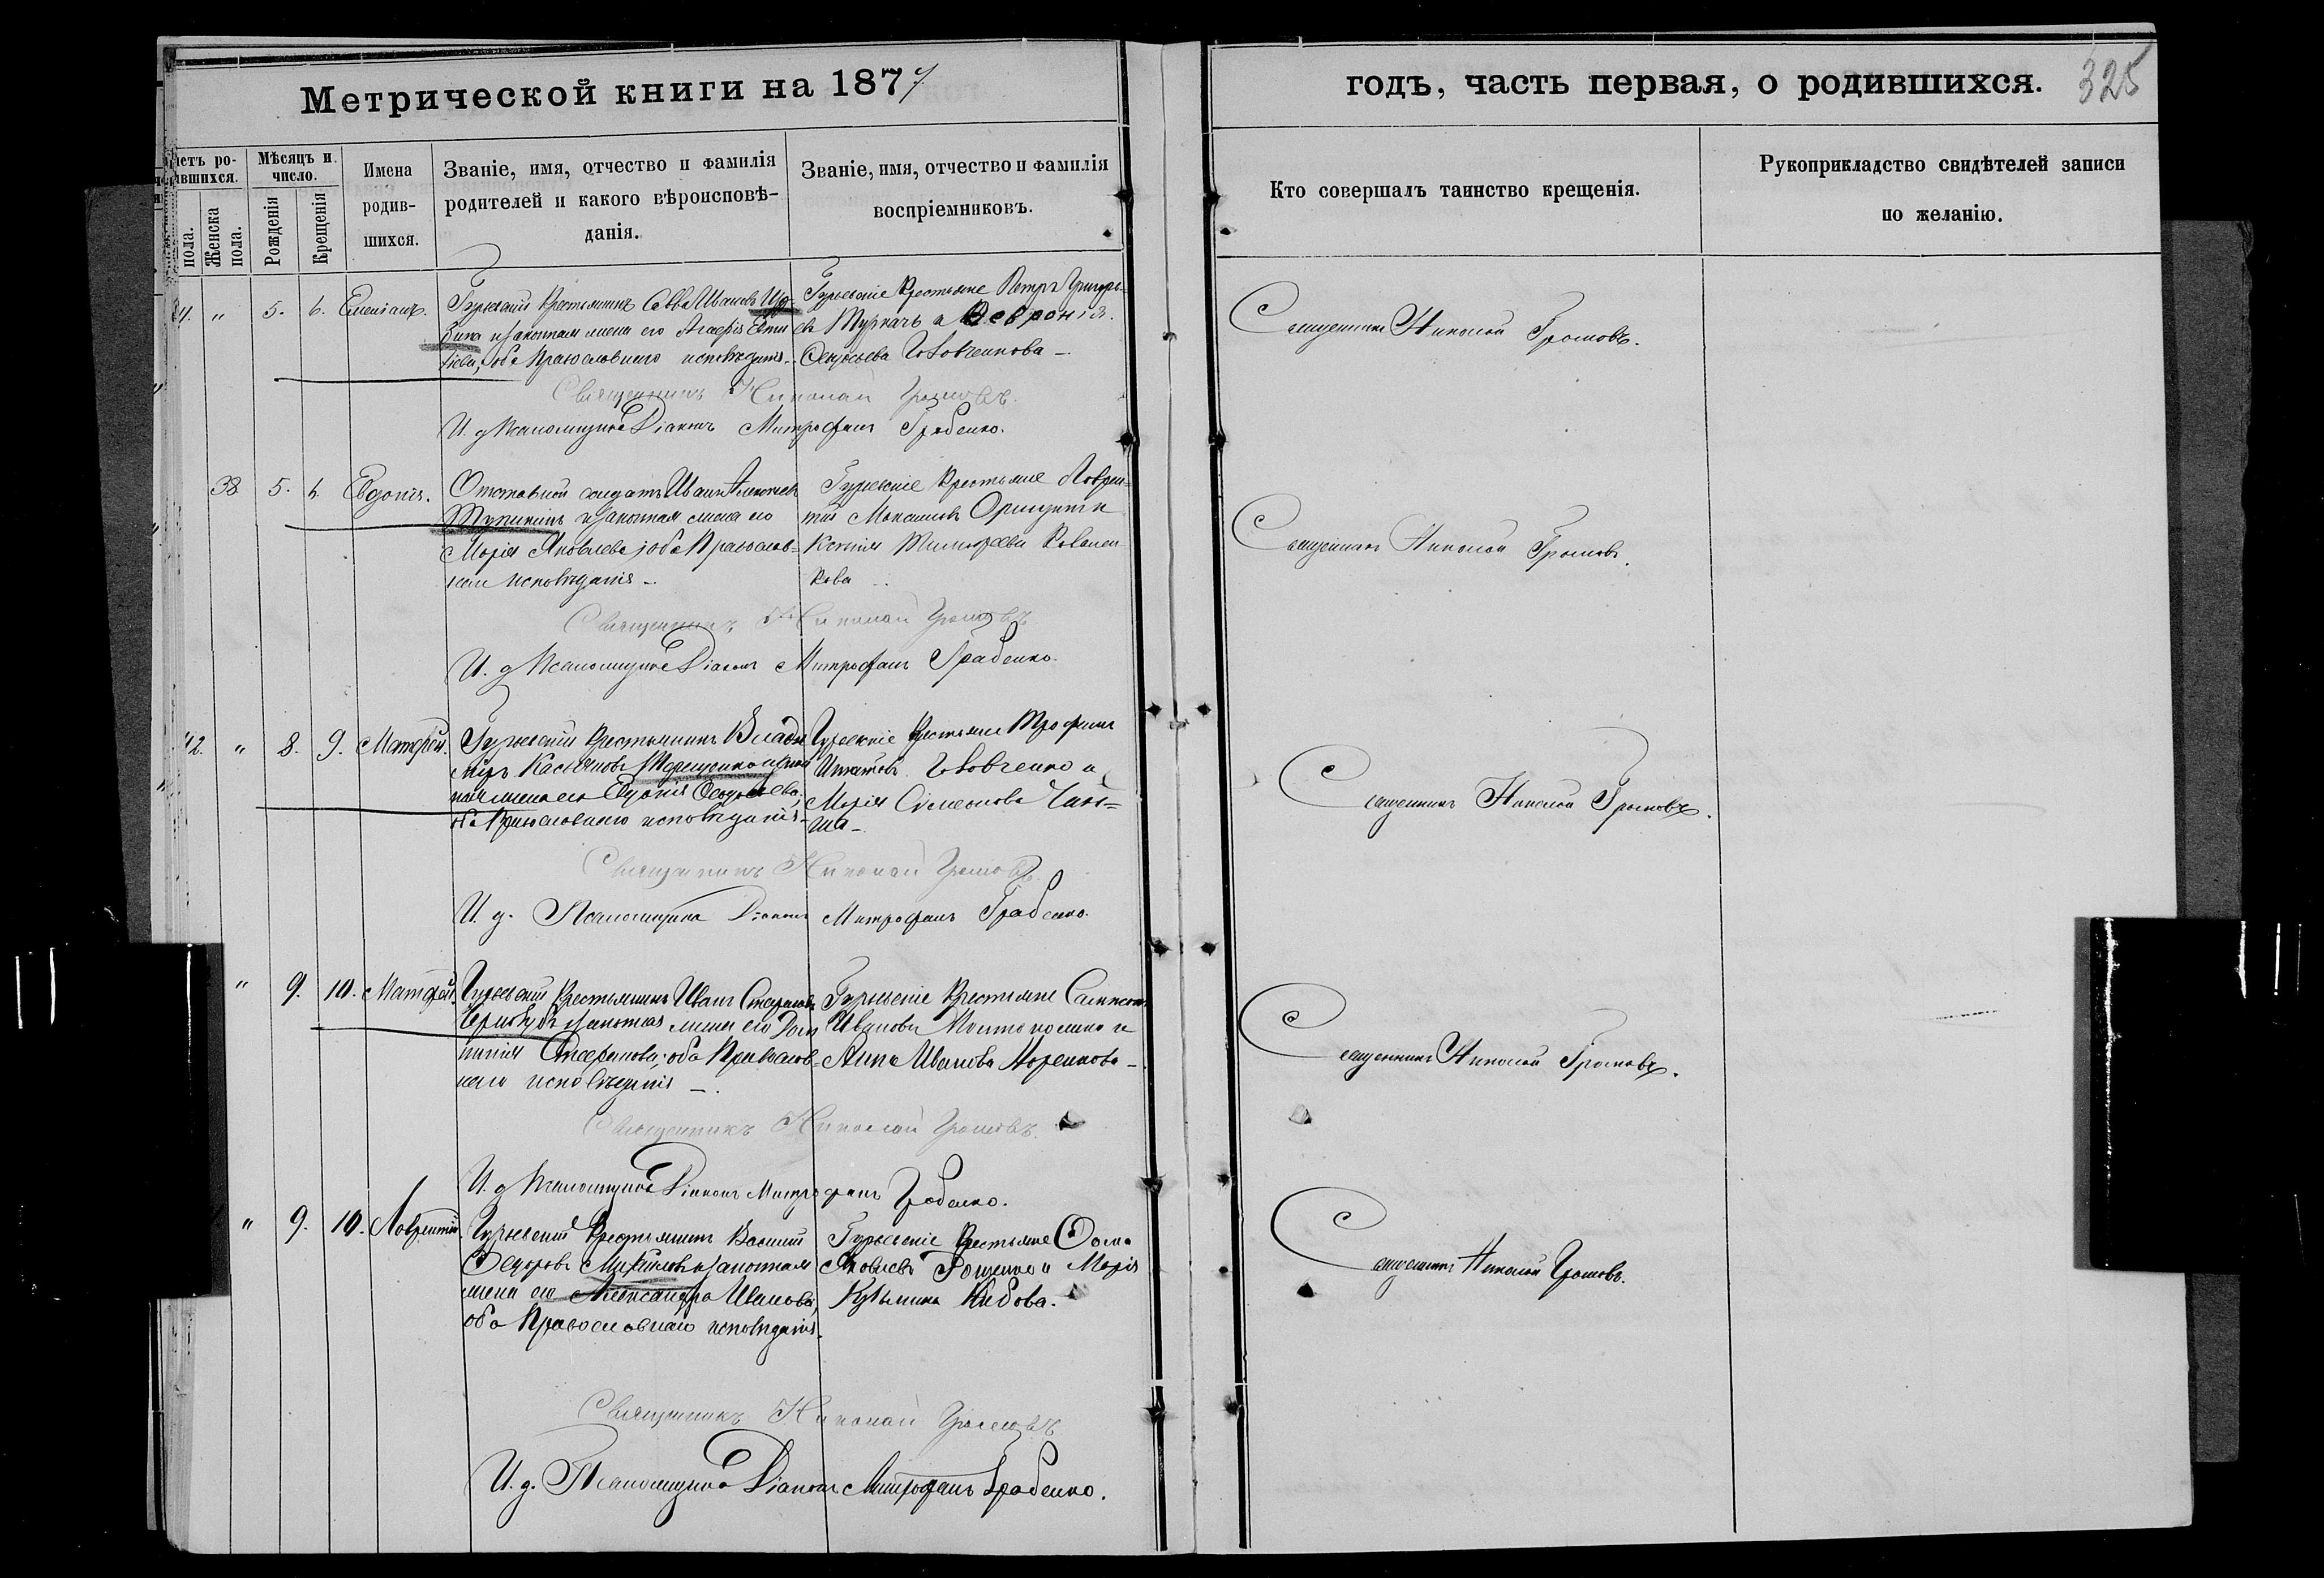 Метрической книги на 1877
годъ, часть первая, о родившихся.
325
Мѣсяцъ и число.
Женска пола.
Рожденія
Крещенія
Имена родив-
шихся.
Званіе, имя, отчество и фамилія
родителей и какого вѣроисповѣ-
данія.
Званіе, имя, отчество и фамилія
воспріемниковъ.
Кто совершалъ таинство крещенія.
Рукоприкладство свидѣтелей записи
по желанію.
" 5. 6. Емеліанъ.
Гурьевскій Крестьянинъ Савва Ивановъ
и законная жена его Агафія
оба Православнаго исповѣданія.
Гурьевскіе Крестьяне Петръ Григорь-
евъ Туркачъ и Февронія
Вовченкова
Священникъ Николай Громовъ.
Священникъ Николай Громовъ.
И. д. Псаломщика Діаконъ Митрофанъ Грабенко.
38 5. 6. Евдокія.
Отставной солдатъ Иванъ
и законная жена его
Марія Яковлева; оба Православ-
наго исповѣданія
Гурьевскіе Крестьяне Лаврен-
тій Максимовъ и
Ксенія Тимофеева
кова
Священникъ Николай Громовъ.
Священникъ Николай Громовъ
И. д. Псаломщика Діаконъ Митрофанъ Грабенко.
42. " 8. 9. Матфей.
Гурьевскій Крестьянинъ Влади-
міръ Касьяновъ Терещенко и закон-
ная жена его Евдокія
оба Православнаго исповѣданія
Гурьевскіе Крестьяне Трофимъ
Игнатовъ Вовченко и
Марія Симеонова
Священникъ Николай Громовъ.
Священникъ Николай Громовъ.
И. д. Псаломщика Діаконъ Митрофанъ Грабенко.
" 9. 10. Матфей.
Гурьевскій Крестьянинъ Иванъ Стефановъ
и законная жена его Дом-
никія Стефанова; оба Православ-
наго исповѣданія
Гурьевскіе Крестьяне Сампсонъ
Ивановъ и
Анна Иванова
Священникъ Николай Громовъ.
Священникъ Николай Громовъ.
И. д. Псаломщика Діаконъ Митрофанъ Грабенко.
" 9. 10. Лаврентій.
Гурьевскій Крестьянинъ Василій
Федоровъ и законная
жена его Александра Иванова,
оба Православнаго исповѣданія.
Гурьевскіе Крестьяне Фома
Яковлевъ и Марія
Кузьмина
Священникъ Николай Громовъ.
Священникъ Николай Громовъ
И. д. Псаломщика Діаконъ Митрофанъ Грабенко.